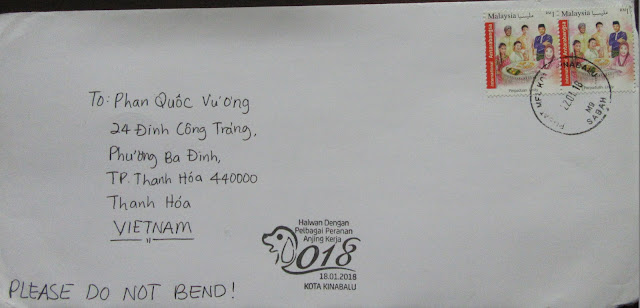 Malaysia مليسيا RM1
Malaysia مليسيا RM1
To: Phan Quốc Vương
24 Đinh Công Tráng,
Phường Ba Đình,
TP. Thanh Hóa 440000
Thanh Hóa
VIETNAM
KINABALU
22.01.18
M9
SABAH
Haiwan Dengan
Pelbagai Peranan
Anjing Kerja
2018
18.01.2018
KOTA KINABALU
PLEASE DO NOT BEND!